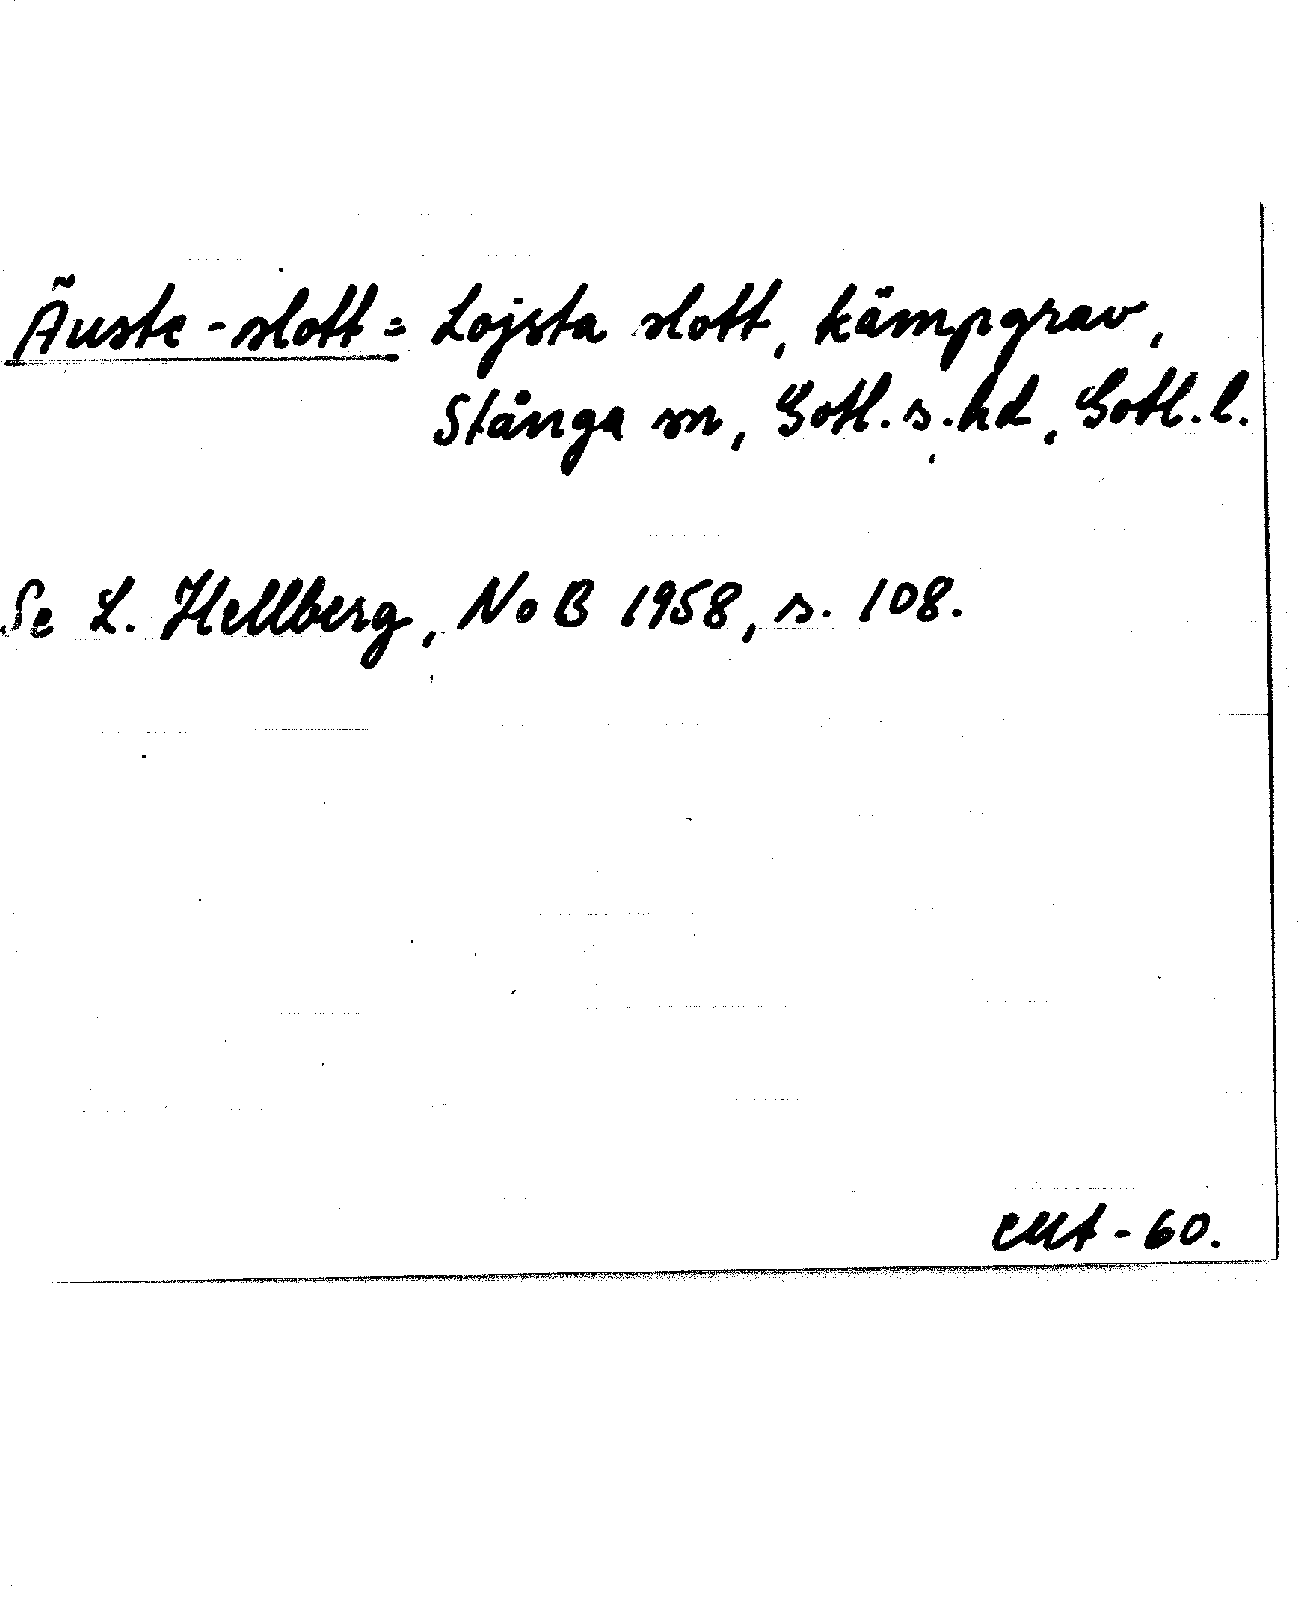 Äuste-slott = Lojsta slott, kämpgrav,
Stånga sn, Gotl. s. hd, Gotl. l.
Se L. Hellberg, NoB 1958, s. 108.
-60.